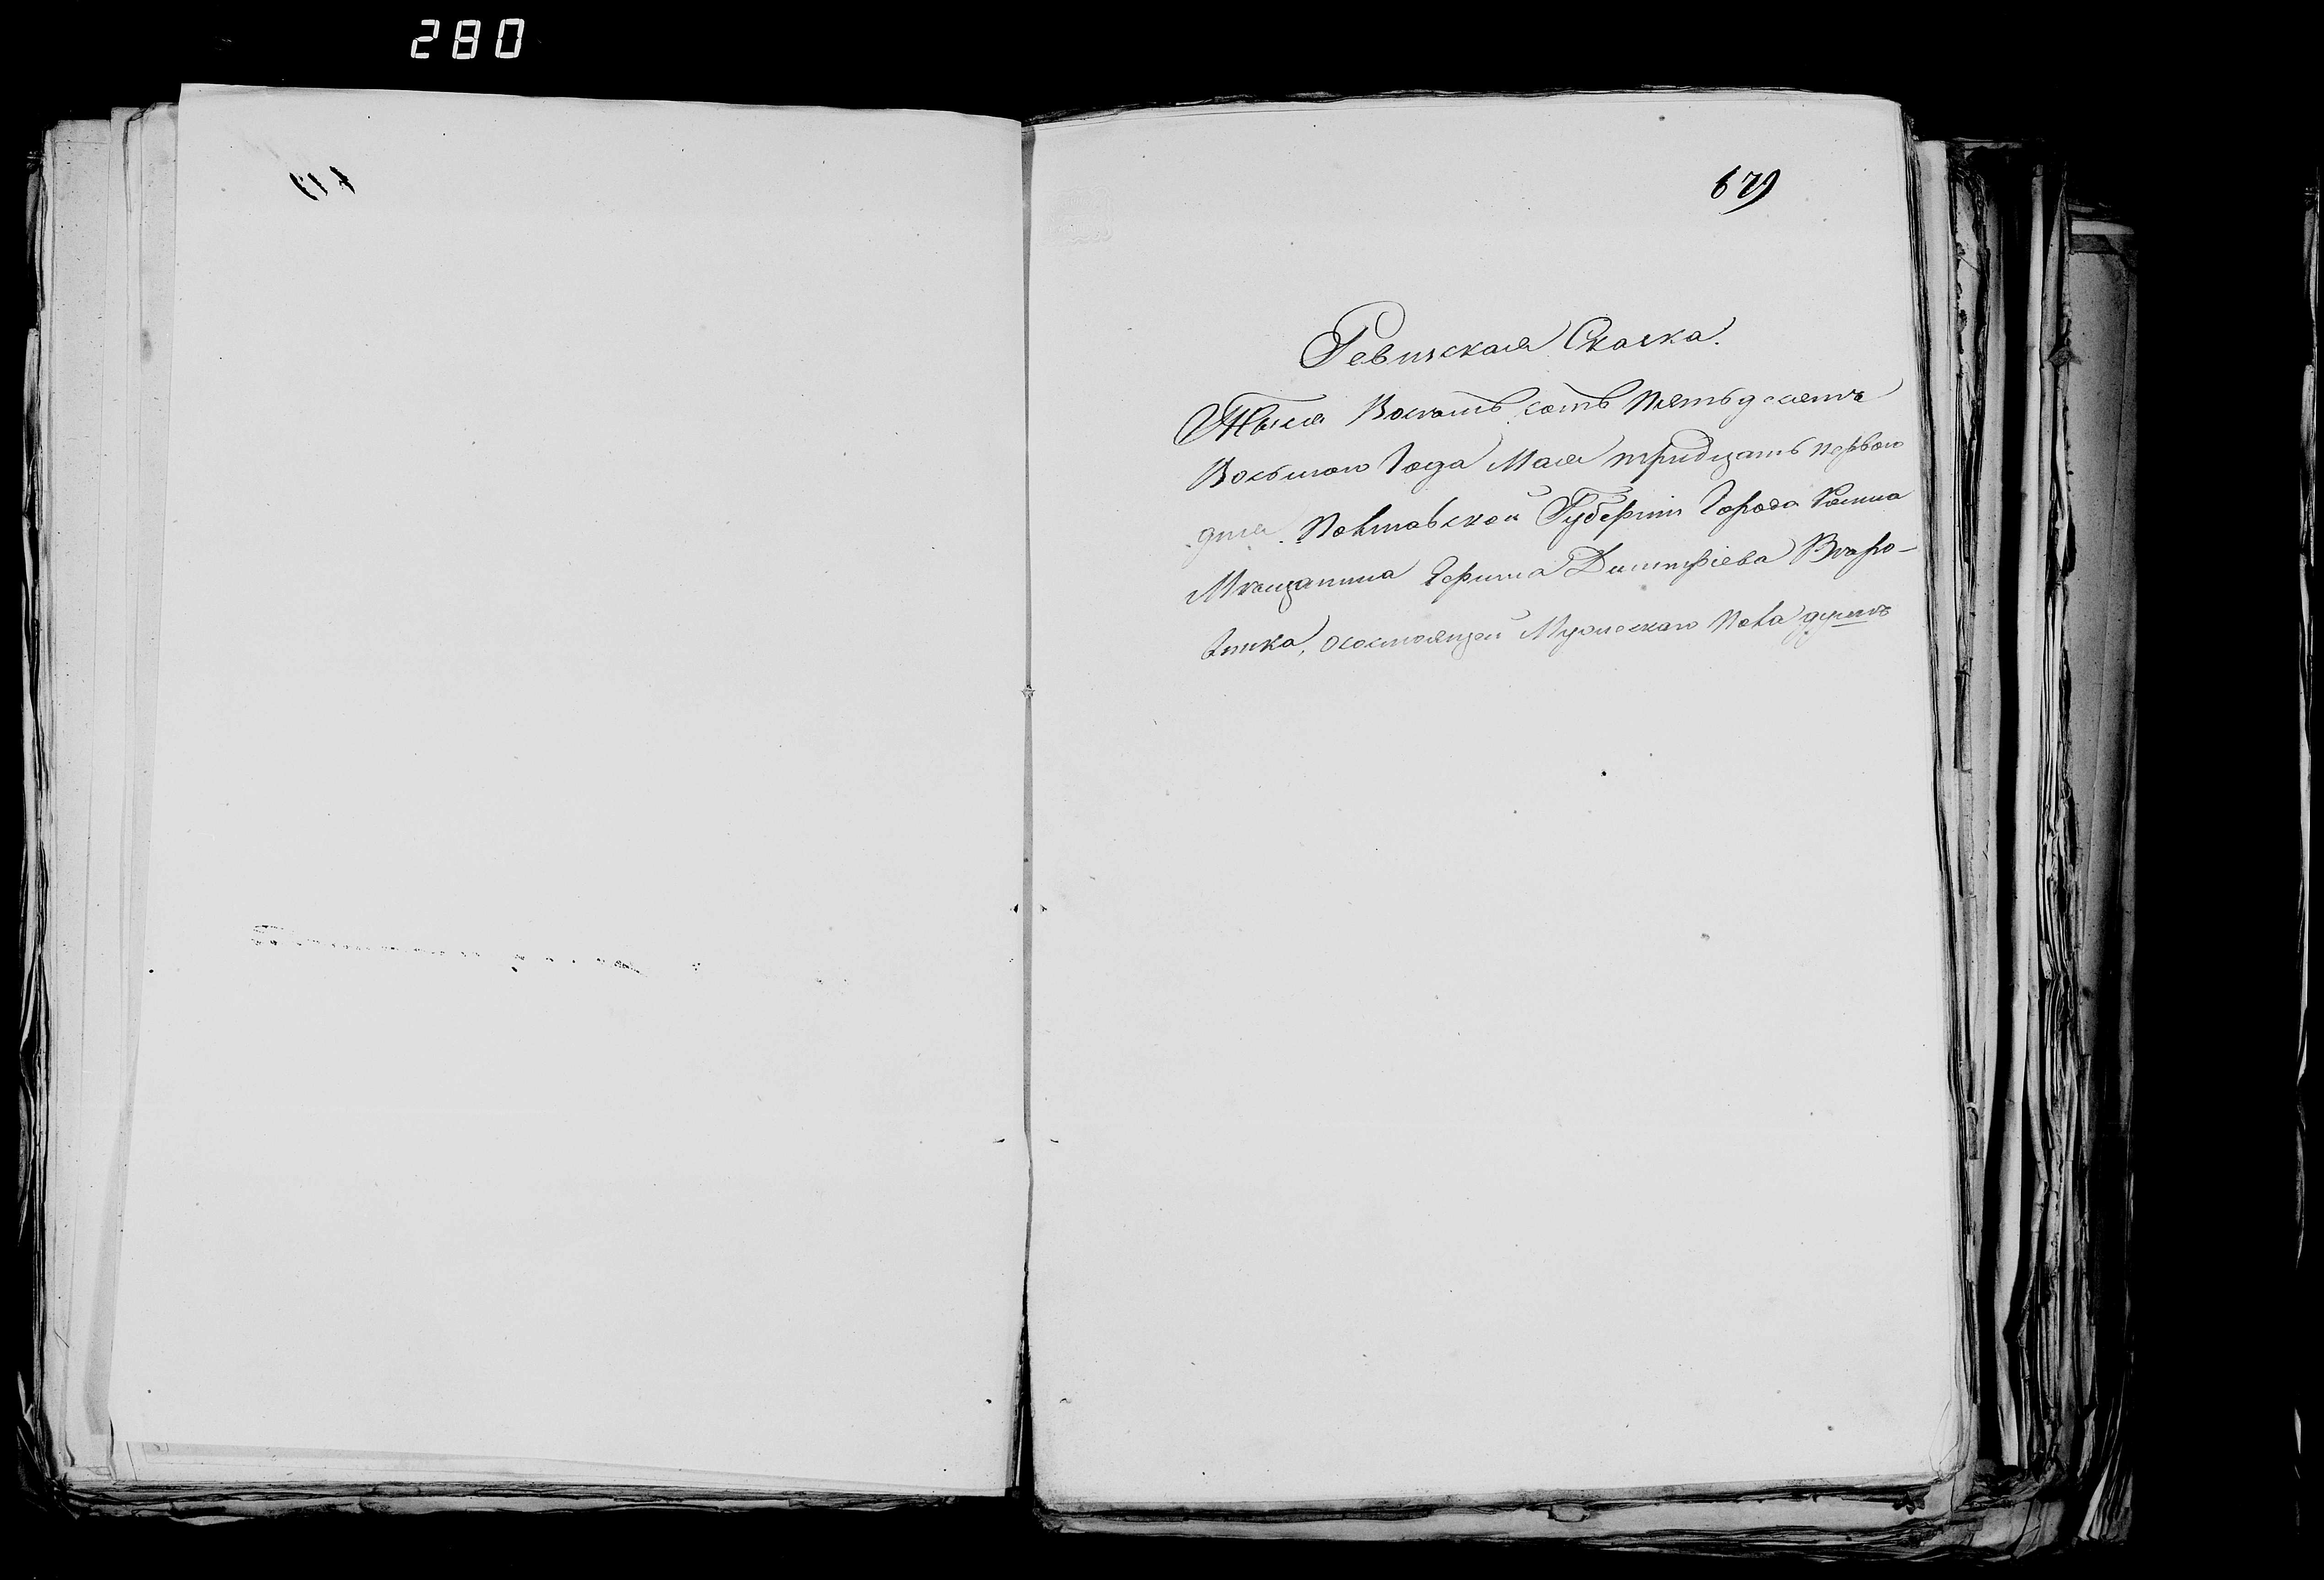 280
679
Ревизская Сказка.
Тысяча Восемь сотъ пятьдесятъ
Восьмого Года Мая тридцать перваго
дня Полтавской Губерніи Города Ромна
Мѣщанина Дмитріева
о состоящей Мужескаго пола душъ